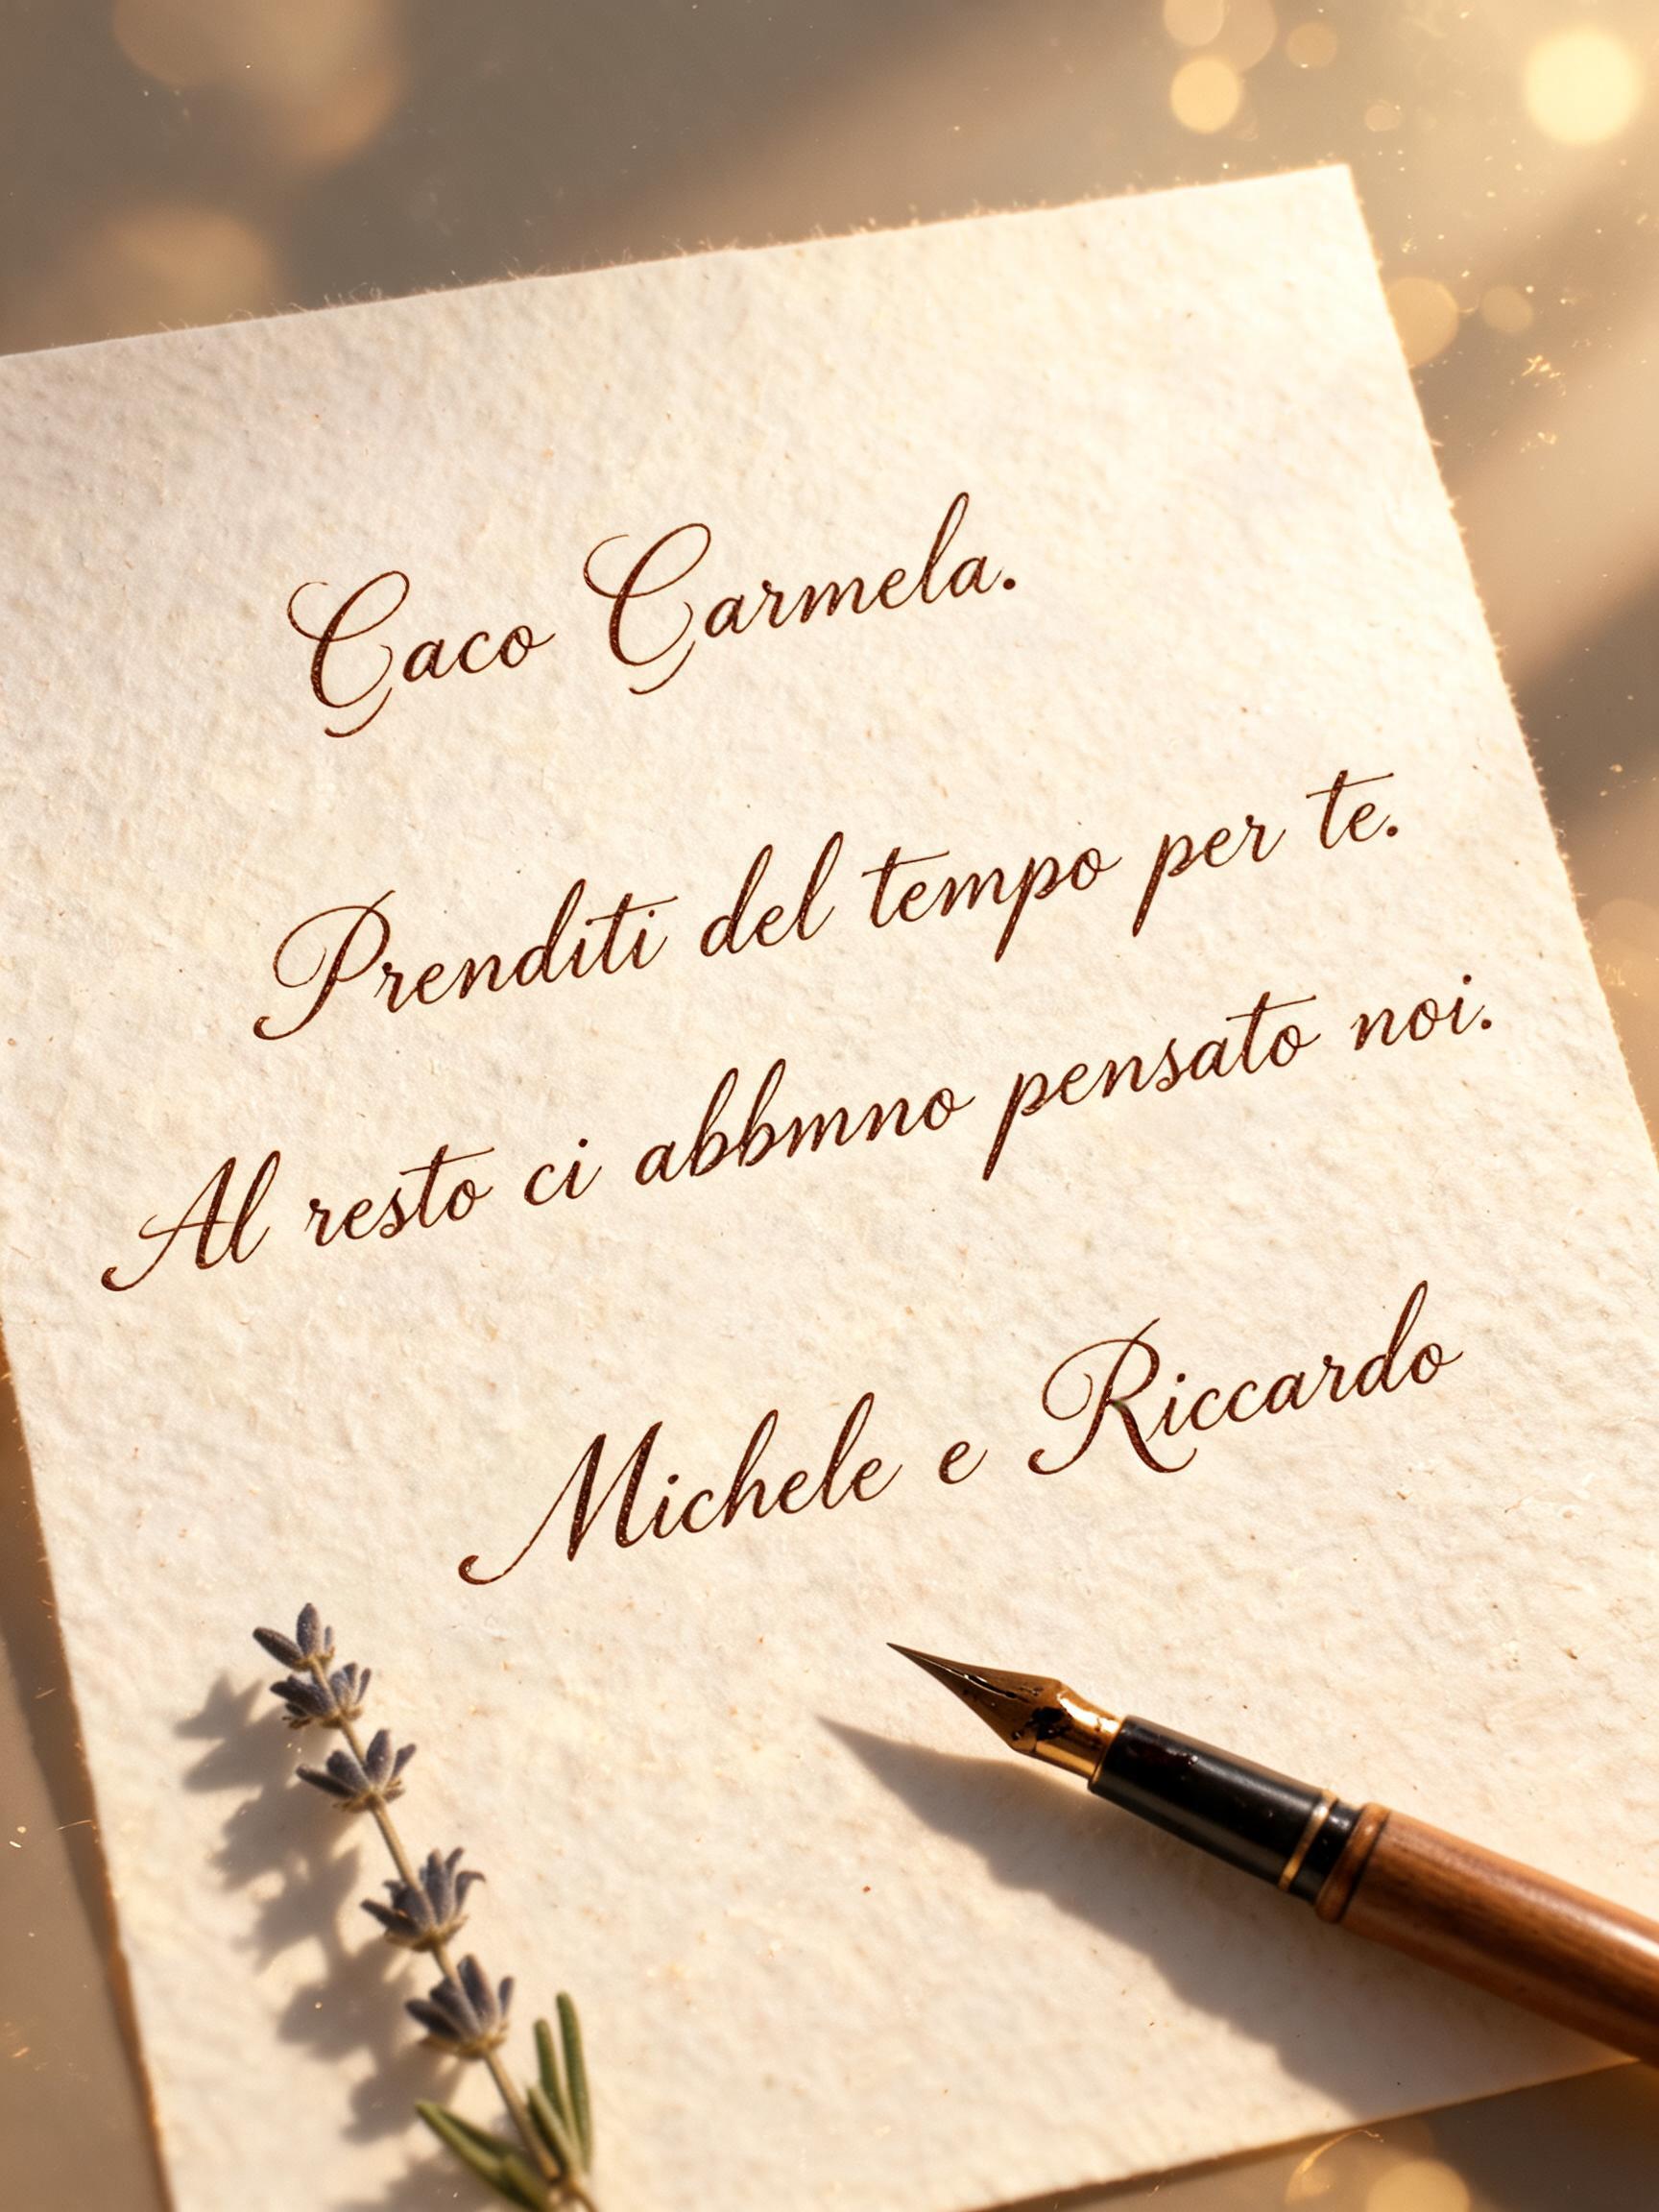 Caco Carmela.
Prenditi del tempo per te.
Al resto ci abbmno pensato noi.
Michele e Riccardo